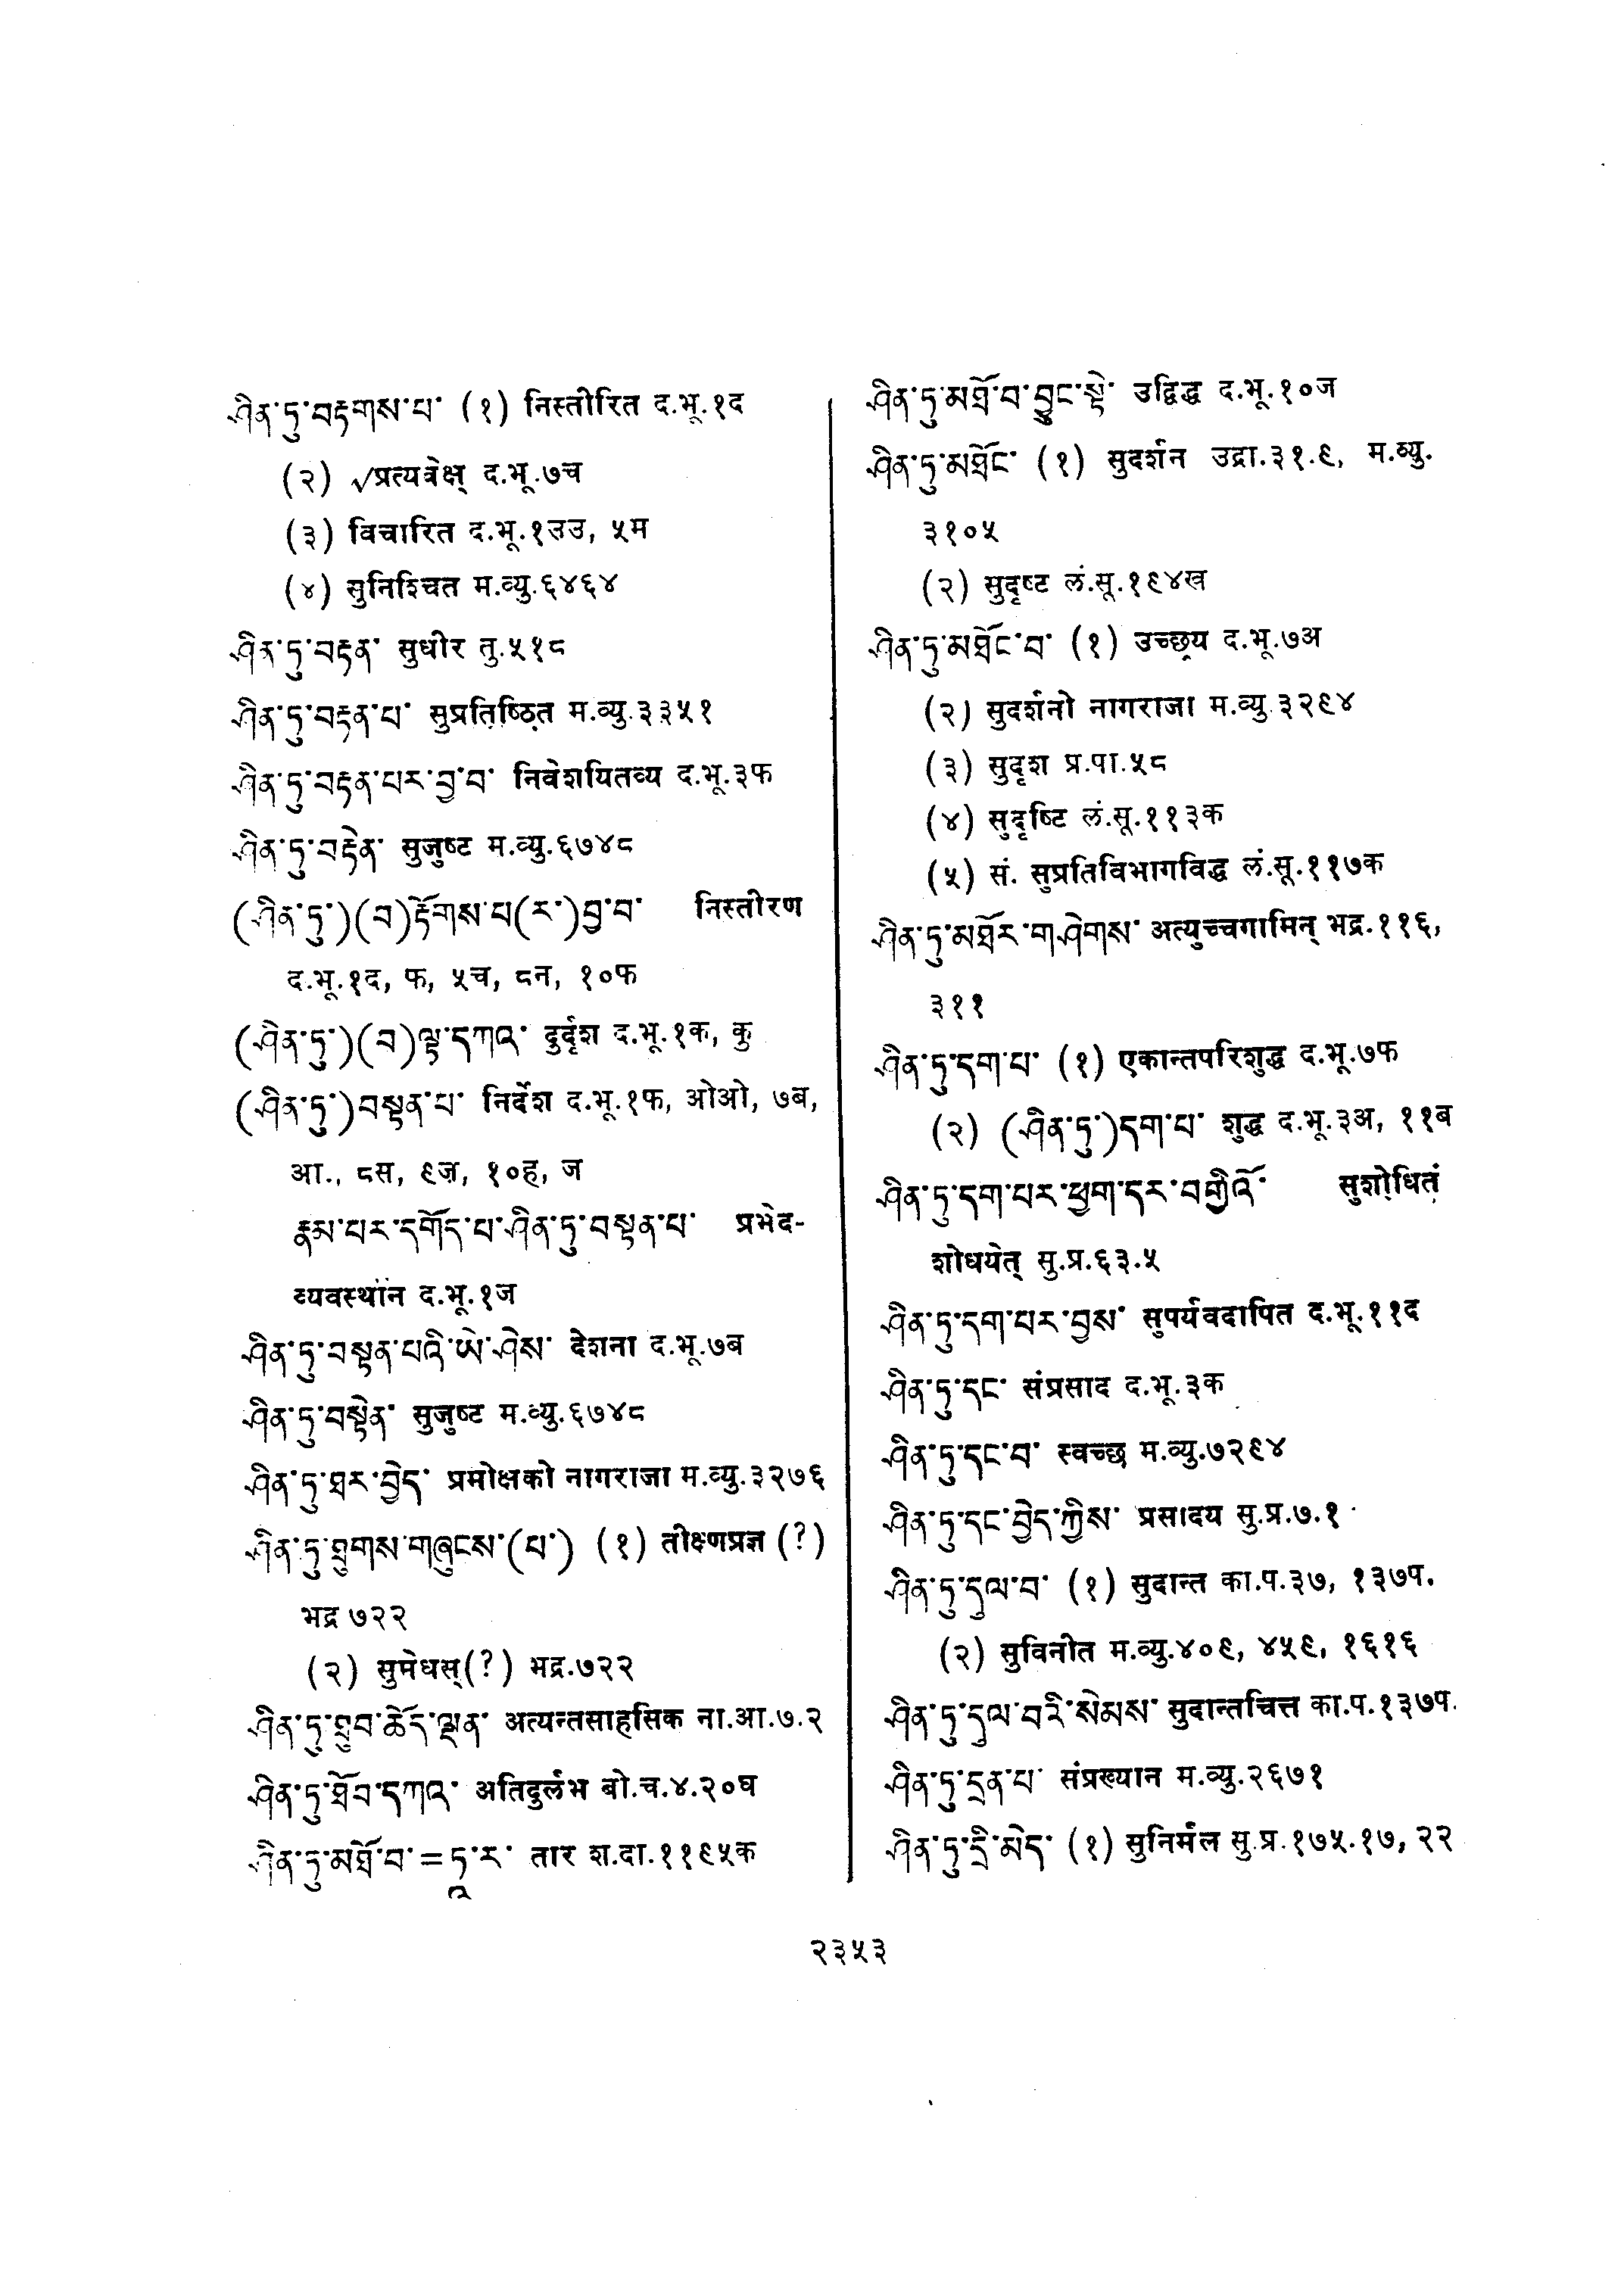 ཤིན་ཏུ་བརྟགས་པ་ (१) निस्तीरित द.भू.१द
(२) √प्रत्यवेक्ष् द.भू.७च
(३) विचारित द.भू.१उउ, ५म
(४) सुनिश्चित म.व्यु.६४६४
ཤིན་ཏུ་བརྟན་ सुधीर तु.५१८
ཤིན་ཏུ་བརྟན་པ་ सुप्रतिष्ठित म.व्यु.३३५१
ཤིན་ཏུ་བརྟན་པར་བྱ་བ་ निवेशयितव्य द.भू.३फ
ཤིན་ཏུ་བརྟེན་ सुजुष्ट म.व्यु.६७४८
(ཤིན་ཏུ་)(བ)རྟོགས་པ(ར་)བྱ་བ་ निस्तीरण
द.भू.१द, फ, ५च, ८न, १०फ
(ཤིན་ཏུ་)(བ)ལྟ་དཀའ་ दुर्दृश द.भू.१क, कु
(ཤིན་ཏུ་)བསྟན་པ་ निर्देश द.भू.१फ, ओओ, ७ब,
आ., ८स, ९ज़, १०ह, ज
རྣམ་པར་དགོད་པ་ཤིན་ཏུ་བསྟན་པ་ प्रभेद-
व्यवस्थान द.भू.१ज
ཤིན་ཏུ་བསྟན་པའི་ཡེ་ཤེས་ देशना द.भू.७ब
ཤིན་ཏུ་བསྟེན་ सुजुष्ट म.व्यु.६७४८
ཤིན་ཏུ་ཐར་བྱེད་ प्रमोक्षको नागराजा म.व्यु.३२७६
ཤིན་ཏུ་ཐུགས་གཞུངས་(པ་) (१) तीक्ष्णप्रज्ञ (?)
भद्र ७२२
(२) सुमेधस्(?) भद्र.७२२
ཤིན་ཏུ་ཐུབ་ཆོད་ལྡན་ अत्यन्तसाहसिक ना.आ.७.२
ཤིན་ཏུ་ཐོབ་དཀའ་ अतिदुर्लभ बो.च.४.२०घ
ཤིན་ཏུ་མཐོ་བ་=ཏཱ་ར་ तार श.दा.११९५क
ཤིན་ཏུ་མཐོ་བ་བྱུང་སྟེ་ उद्विद्ध द.भू.१०ज
ཤིན་ཏུ་མཐོང་ (१) सुदर्शन उद्रा.३१.९, म.व्यु.
३१०५
(२) सुदृष्ट लं.सू.१९४ख
ཤིན་ཏུ་མཐོང་བ་ (१) उच्छ्रय द.भू.७अ
(२) सुदर्शनो नागराजा म.व्यु.३२९४
(३) सुदृश प्र.पा.५८
(४) सुदृष्टि लं.सू.११३क
(५) सं. सुप्रतिविभागविद्ध लं.सू.११७क
ཤིན་ཏུ་མཐོར་གཤེགས་ अत्युच्चगामिन् भद्र.११६,
३११
ཤིན་ཏུ་དག་པ་ (१) एकान्तपरिशुद्ध द.भू.७फ
(२) (ཤིན་ཏུ་)དག་པ་ शुद्ध द.भू.३अ, ११ब
ཤིན་ཏུ་དག་པར་ཕྱག་དར་བགྱིའོ་ सुशोधितं
शोधयेत् सु.प्र.६३.५
ཤིན་ཏུ་དག་པར་བྱས་ सुपर्यवदापित द.भू.११द
ཤིན་ཏུ་དང་ संप्रसाद द.भू.३क
ཤིན་ཏུ་དང་བ་ स्वच्छ म.व्यु.७२९४
ཤིན་ཏུ་དང་བྱེད་ཀྱིས་ प्रसादय सु.प्र.७.१
ཤིན་ཏུ་དུལ་བ་ (१) सुदान्त का.प.३७, १३७प.
(२) सुविनीत म.व्यु.४०९, ४५९, १६१६
ཤིན་ཏུ་དུལ་བའི་སེམས་ सुदान्तचित्त का.प.१३७प.
ཤིན་ཏུ་དྲན་པ་ संप्रख्यान म.व्यु.२६७१
ཤིན་ཏུ་དྲི་མེད་ (१) सुनिर्मल सु.प्र.१७५.१७, २२
२३५३